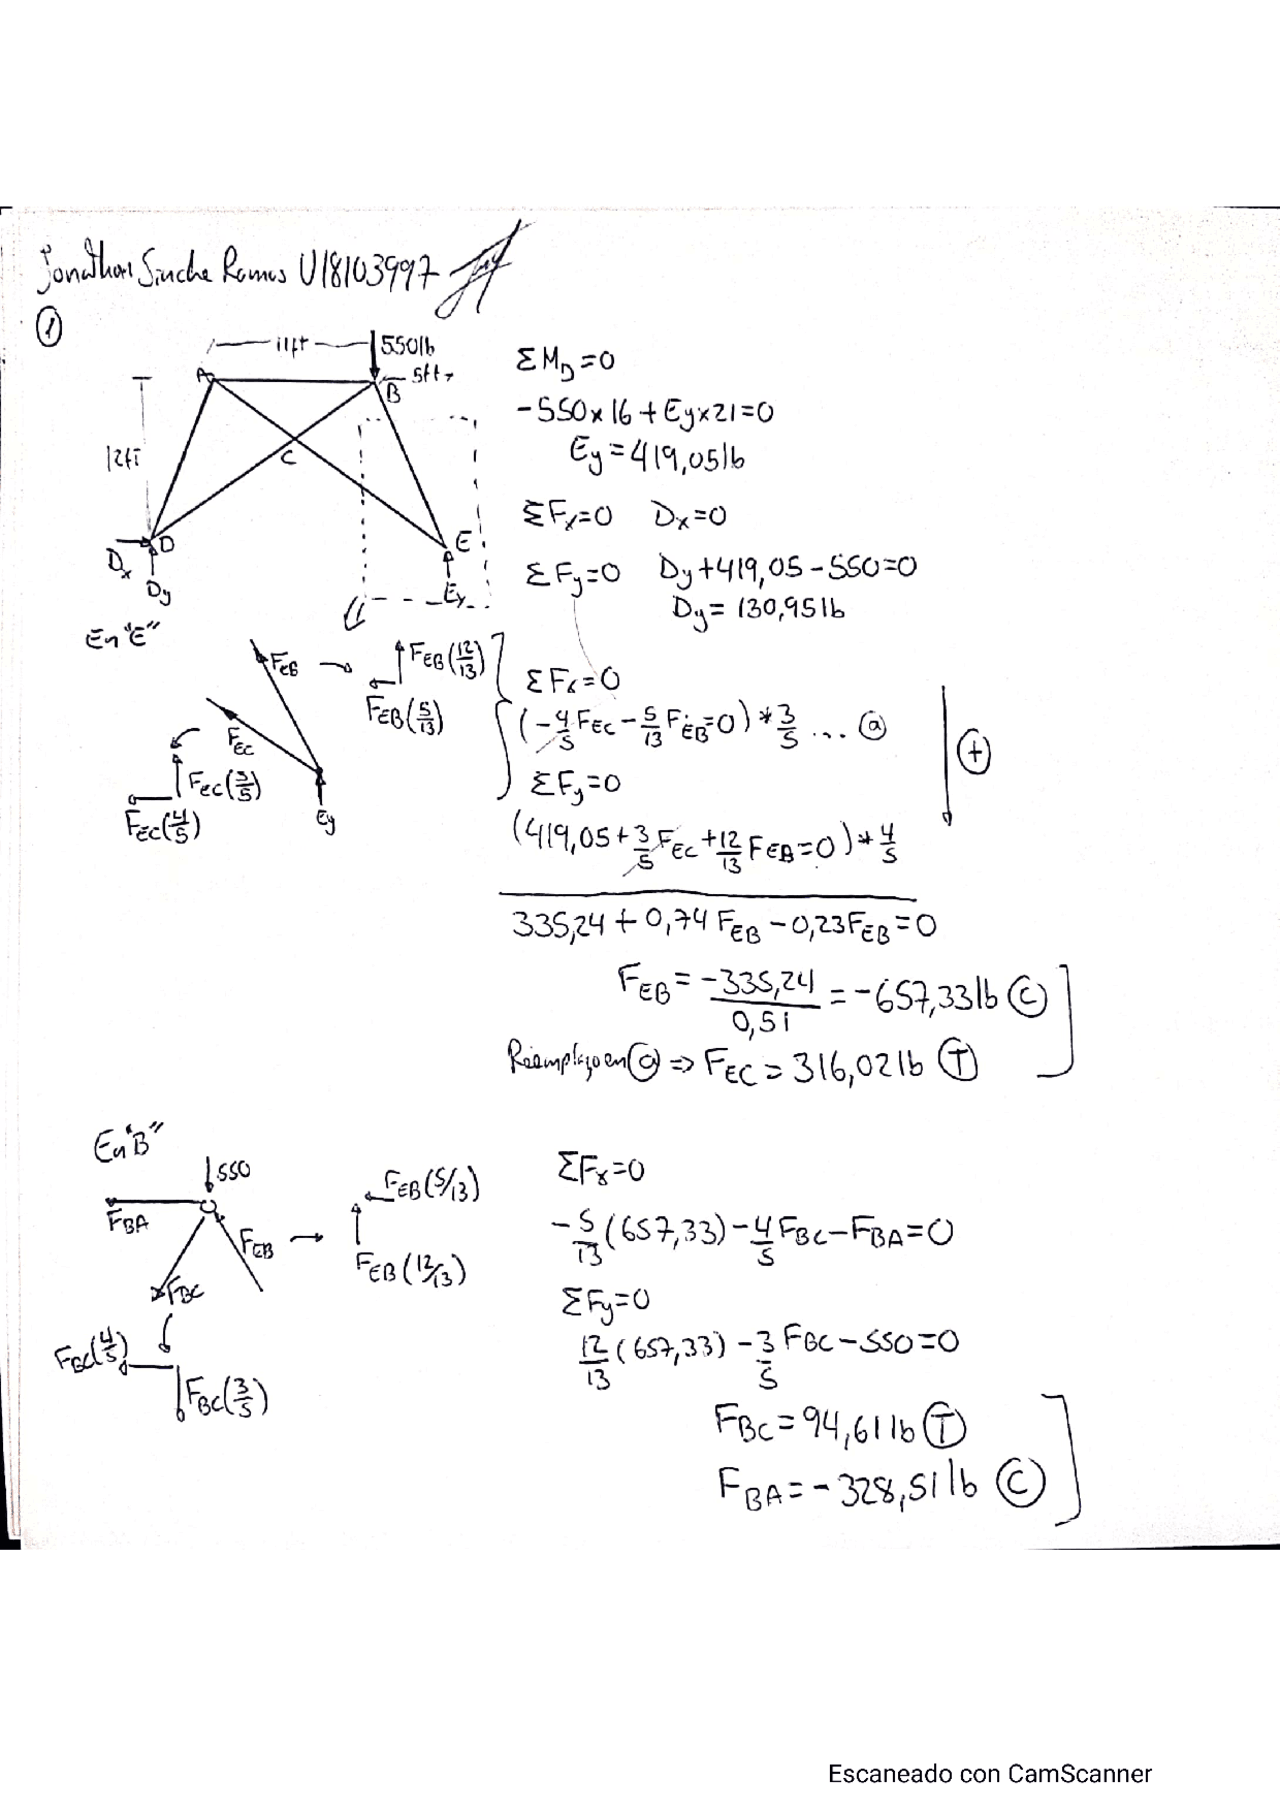 Jonathan Sinche Ramos U18103997
①
11ft
550lb
A
B
5ft
12ft
C
D
E
Dx
Dy
Ey
ΣM_D=0
-550×16+Ey×21=0
Ey=419,05lb
ΣFx=0 Dx=0
ΣFy=0 Dy+419,05-550=0
Dy=130,95lb
En "E"
F_EB → F_EB(12/13)
F_EB(5/13)
F_EC
F_EC(3/5)
F_EC(4/5)
Ey
ΣFx=0
(-4/5 F_EC - 5/13 F_EB=0)*3/5 ... ⓐ
ΣFy=0
(419,05+3/5 F_EC+12/13 F_EB=0)*4/5
⊕
335,24+0,74F_EB-0,23F_EB=0
F_EB=-335,24/0,51=-657,33lb Ⓒ
Reemplazo en ⓐ ⇒ F_EC=316,02lb Ⓣ
En "B"
550
F_BA
F_EB → F_EB(5/13)
F_EB(12/13)
F_BC
F_BC(4/5)
F_BC(3/5)
ΣFx=0
-5/13(657,33)-4/5 F_BC-F_BA=0
ΣFy=0
12/13(657,33)-3/5 F_BC-550=0
F_BC=94,61lb Ⓣ
F_BA=-328,51lb Ⓒ
Escaneado con CamScanner